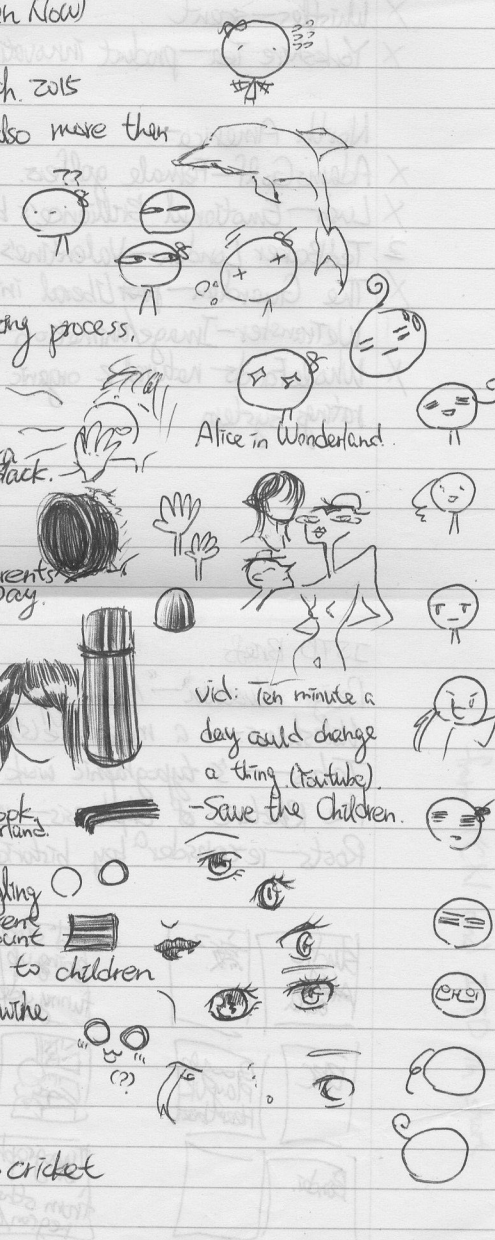 en Now)
ch. 2015
also more than
??
ing process.
Alice in Wonderland.
a
lack.
rents
Day.
vid: Ten minute a
day could change
a thing (Youtube).
- Save the Children.
ook
rland.
ling
rent
ount
to children
wine
(?)
cricket